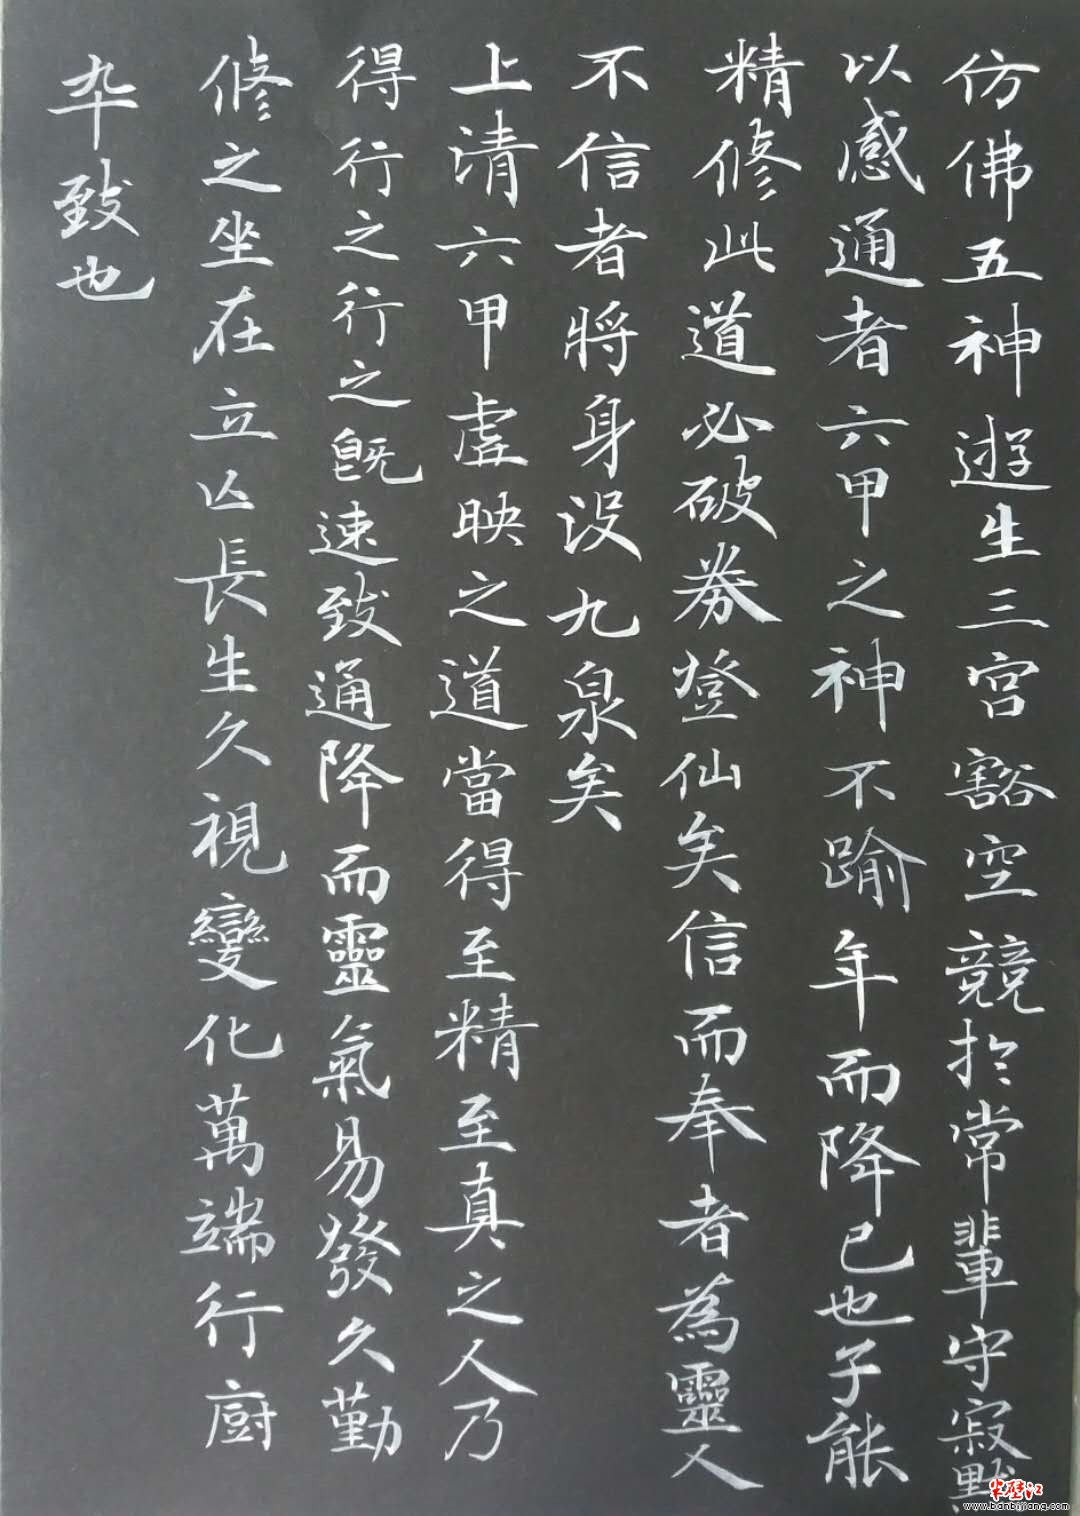 仿佛五神遊生三宫豁空競於常輩守寂默
以感通者六甲之神不踰年而降已也子能
精修此道必破券登仙矣信而奉者為靈人
不信者將身没九泉矣
上清六甲虚映之道當得至精至真之人乃
得行之行之既速致通降而靈氣易發久勤
修之坐在立亡長生久視變化萬端行厨
卒致也
半壁江
www.banbijiang.com